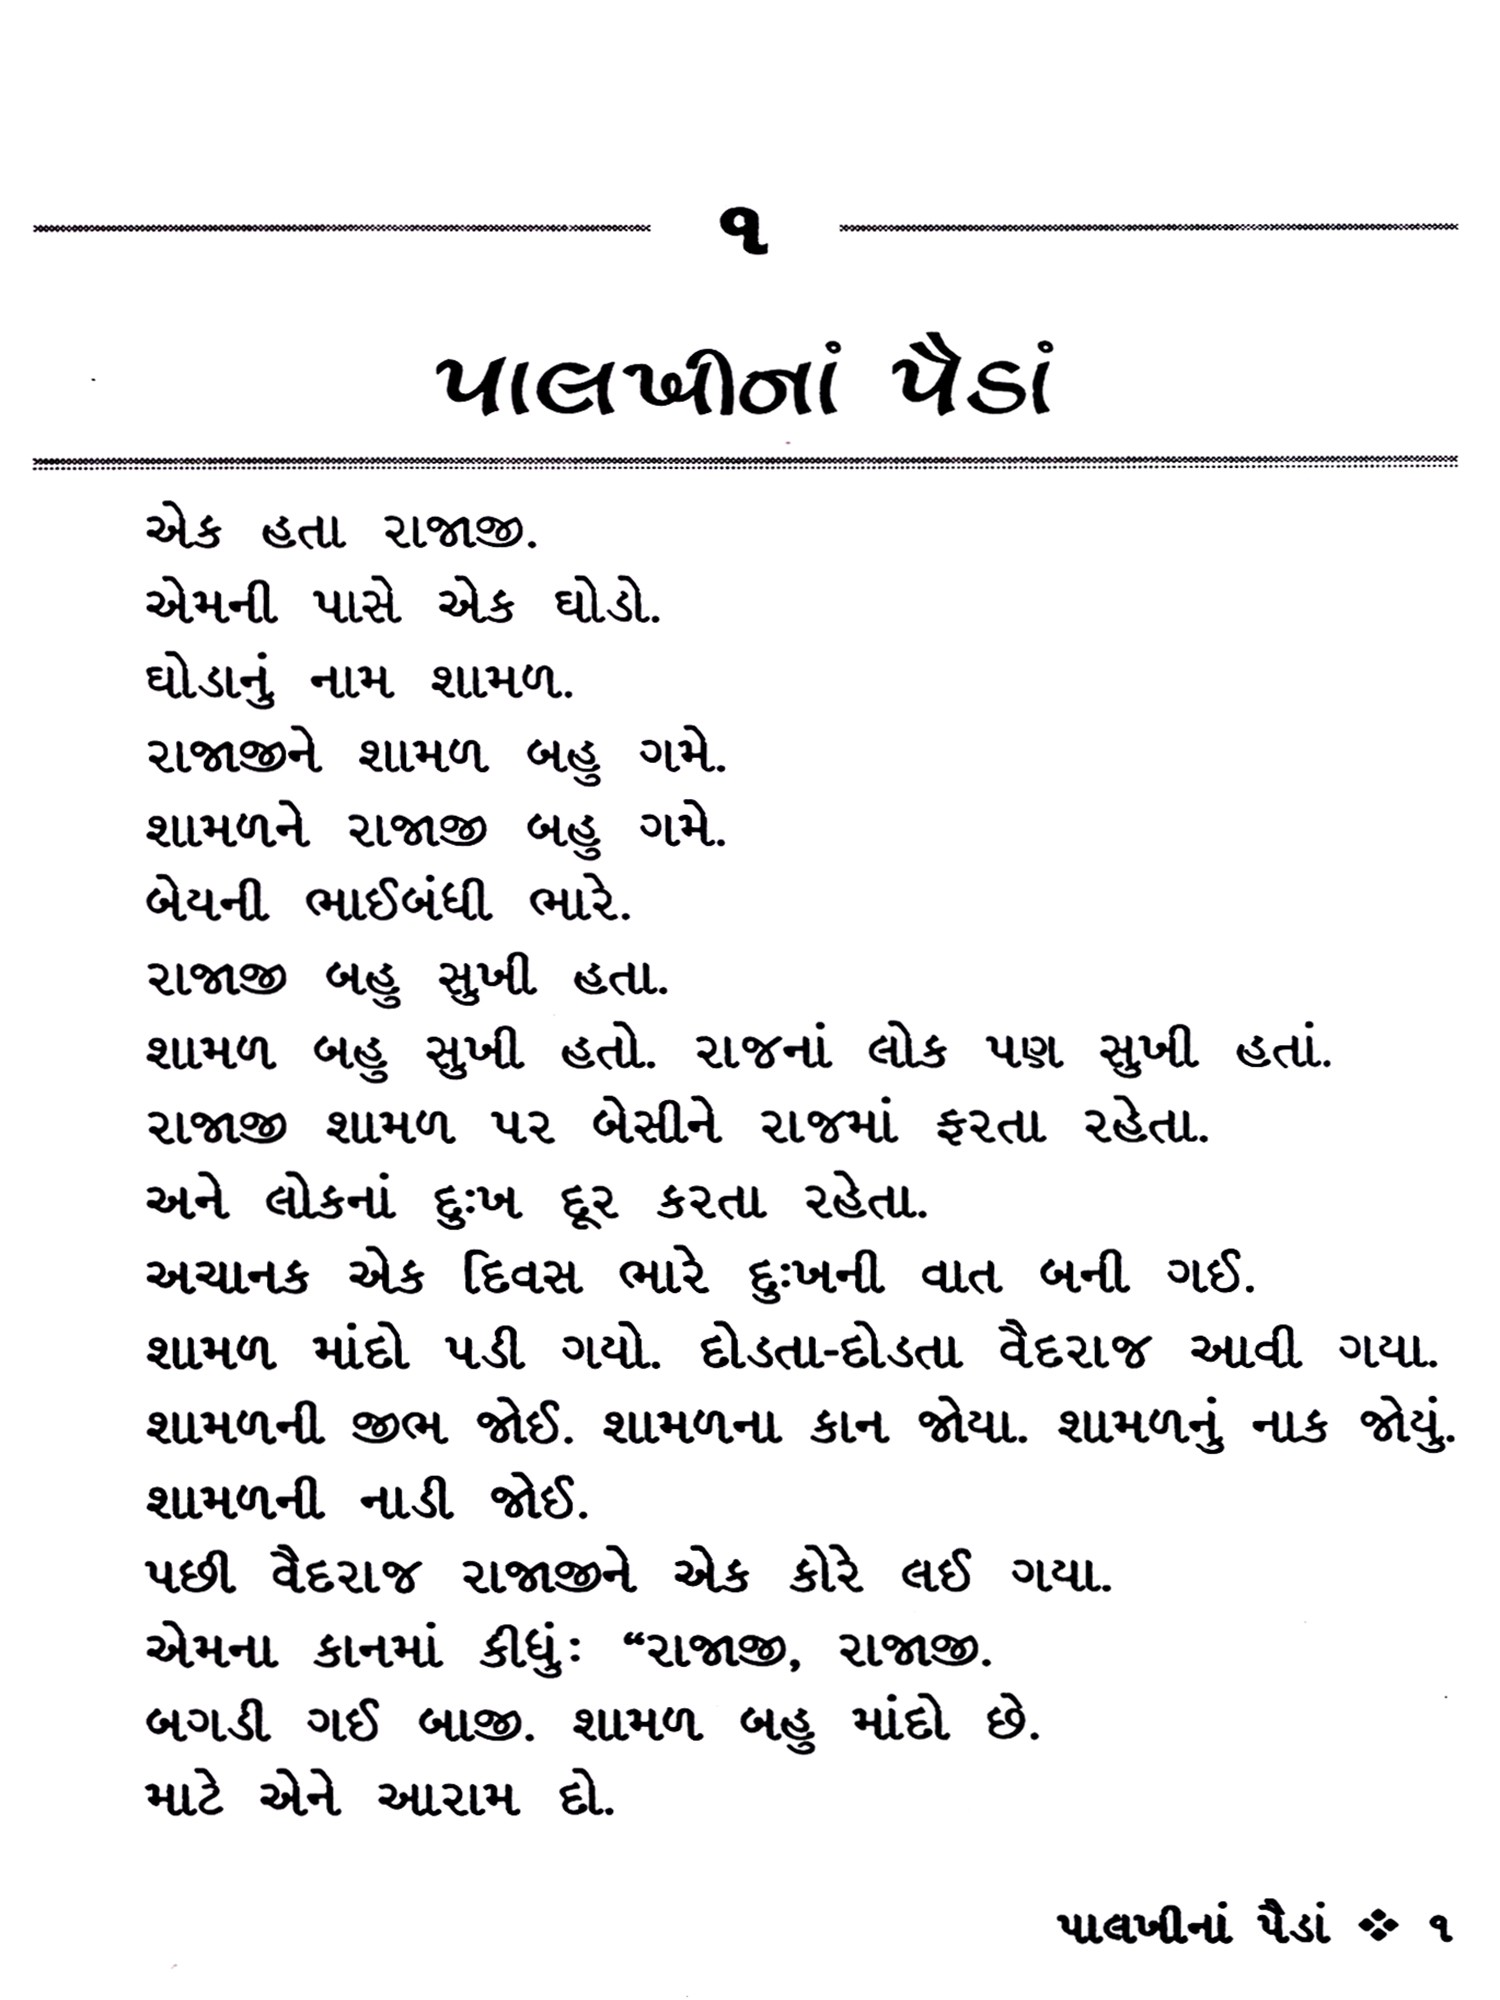 ૧
પાલખીનાં પૈડાં
એક હતા રાજાજી.
એમની પાસે એક ઘોડો.
ઘોડાનું નામ શામળ.
રાજાજીને શામળ બહુ ગમે.
શામળને રાજાજી બહુ ગમે.
બેયની ભાઈબંધી ભારે.
રાજાજી બહુ સુખી હતા.
શામળ બહુ સુખી હતો. રાજનાં લોક પણ સુખી હતાં.
રાજાજી શામળ પર બેસીને રાજમાં ફરતા રહેતા.
અને લોકનાં દુઃખ દૂર કરતા રહેતા.
અચાનક એક દિવસ ભારે દુઃખની વાત બની ગઈ.
શામળ માંદો પડી ગયો. દોડતા-દોડતા વૈદરાજ આવી ગયા.
શામળની જીભ જોઈ. શામળના કાન જોયા. શામળનું નાક જોયું.
શામળની નાડી જોઈ.
પછી વૈદરાજ રાજાજીને એક કોરે લઈ ગયા.
એમના કાનમાં કીધુંઃ “રાજાજી, રાજાજી.
બગડી ગઈ બાજી. શામળ બહુ માંદો છે.
માટે એને આરામ દો.
પાલખીનાં પૈડાં ❖ ૧